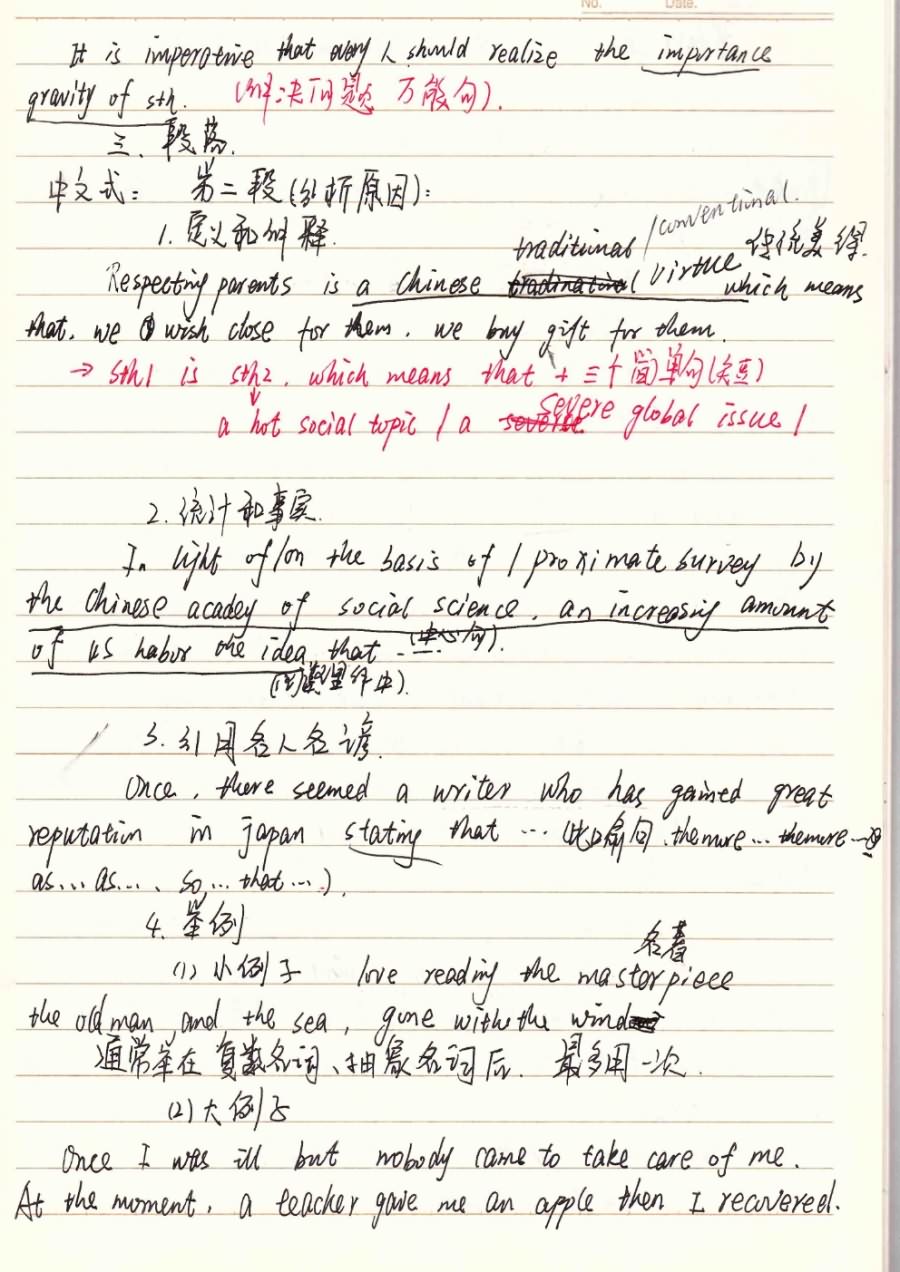 No. Date.
It is imperative that every 人 should realize the importance
gravity of sth. (解决问题 万能句).
三、段落.
中文式: 第二段(分析原因):
1. 定义和解释.
traditional / conventional.
Respecting parents is a Chinese virtue 传统美德. which means
that, we wish close for them, we buy gift for them.
→ sth1 is sth2, which means that + 三个简单句(短)
a hot social topic / a severe global issue /
2. 统计和事实.
In light of/on the basis of / proximate survey by
the Chinese acadey of social science, an increasing amount
of us habor the idea that ...(中心句).
3. 引用名人名谚.
Once, there seemed a writer who has gained great
reputation in japan stating that ... (比喻句, the more... the more...
as... as..., so... that...).
4. 举例
(1) 小例子 love reading the masterpiece 名著
the old man and the sea, gone with the wind
通常举在复数名词、抽象名词后. 最多用一次.
(2) 大例子
Once I was ill but nobody came to take care of me.
At the moment, a teacher gave me an apple then I recovered.